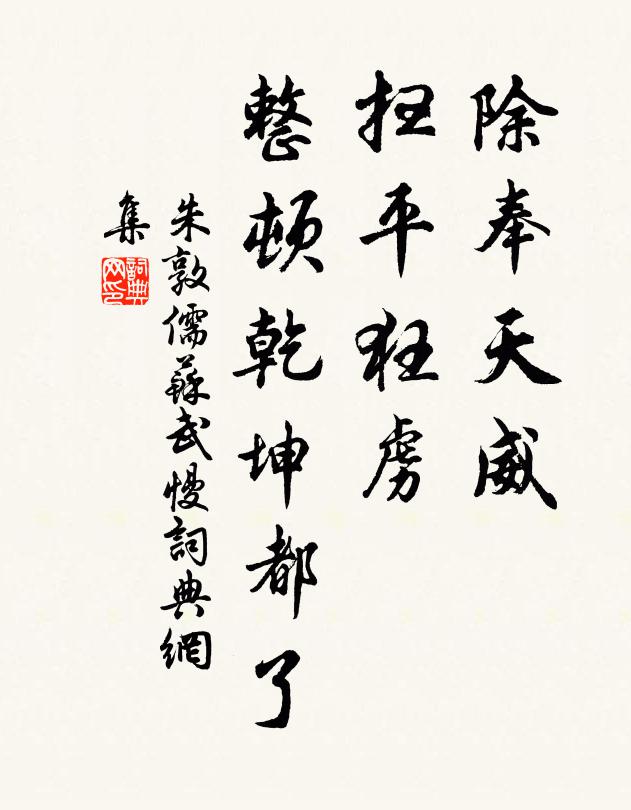 除奉天威
扫平狂虏
整顿乾坤都了
朱敦儒蘇武慢詞典網
集
詞典
网印